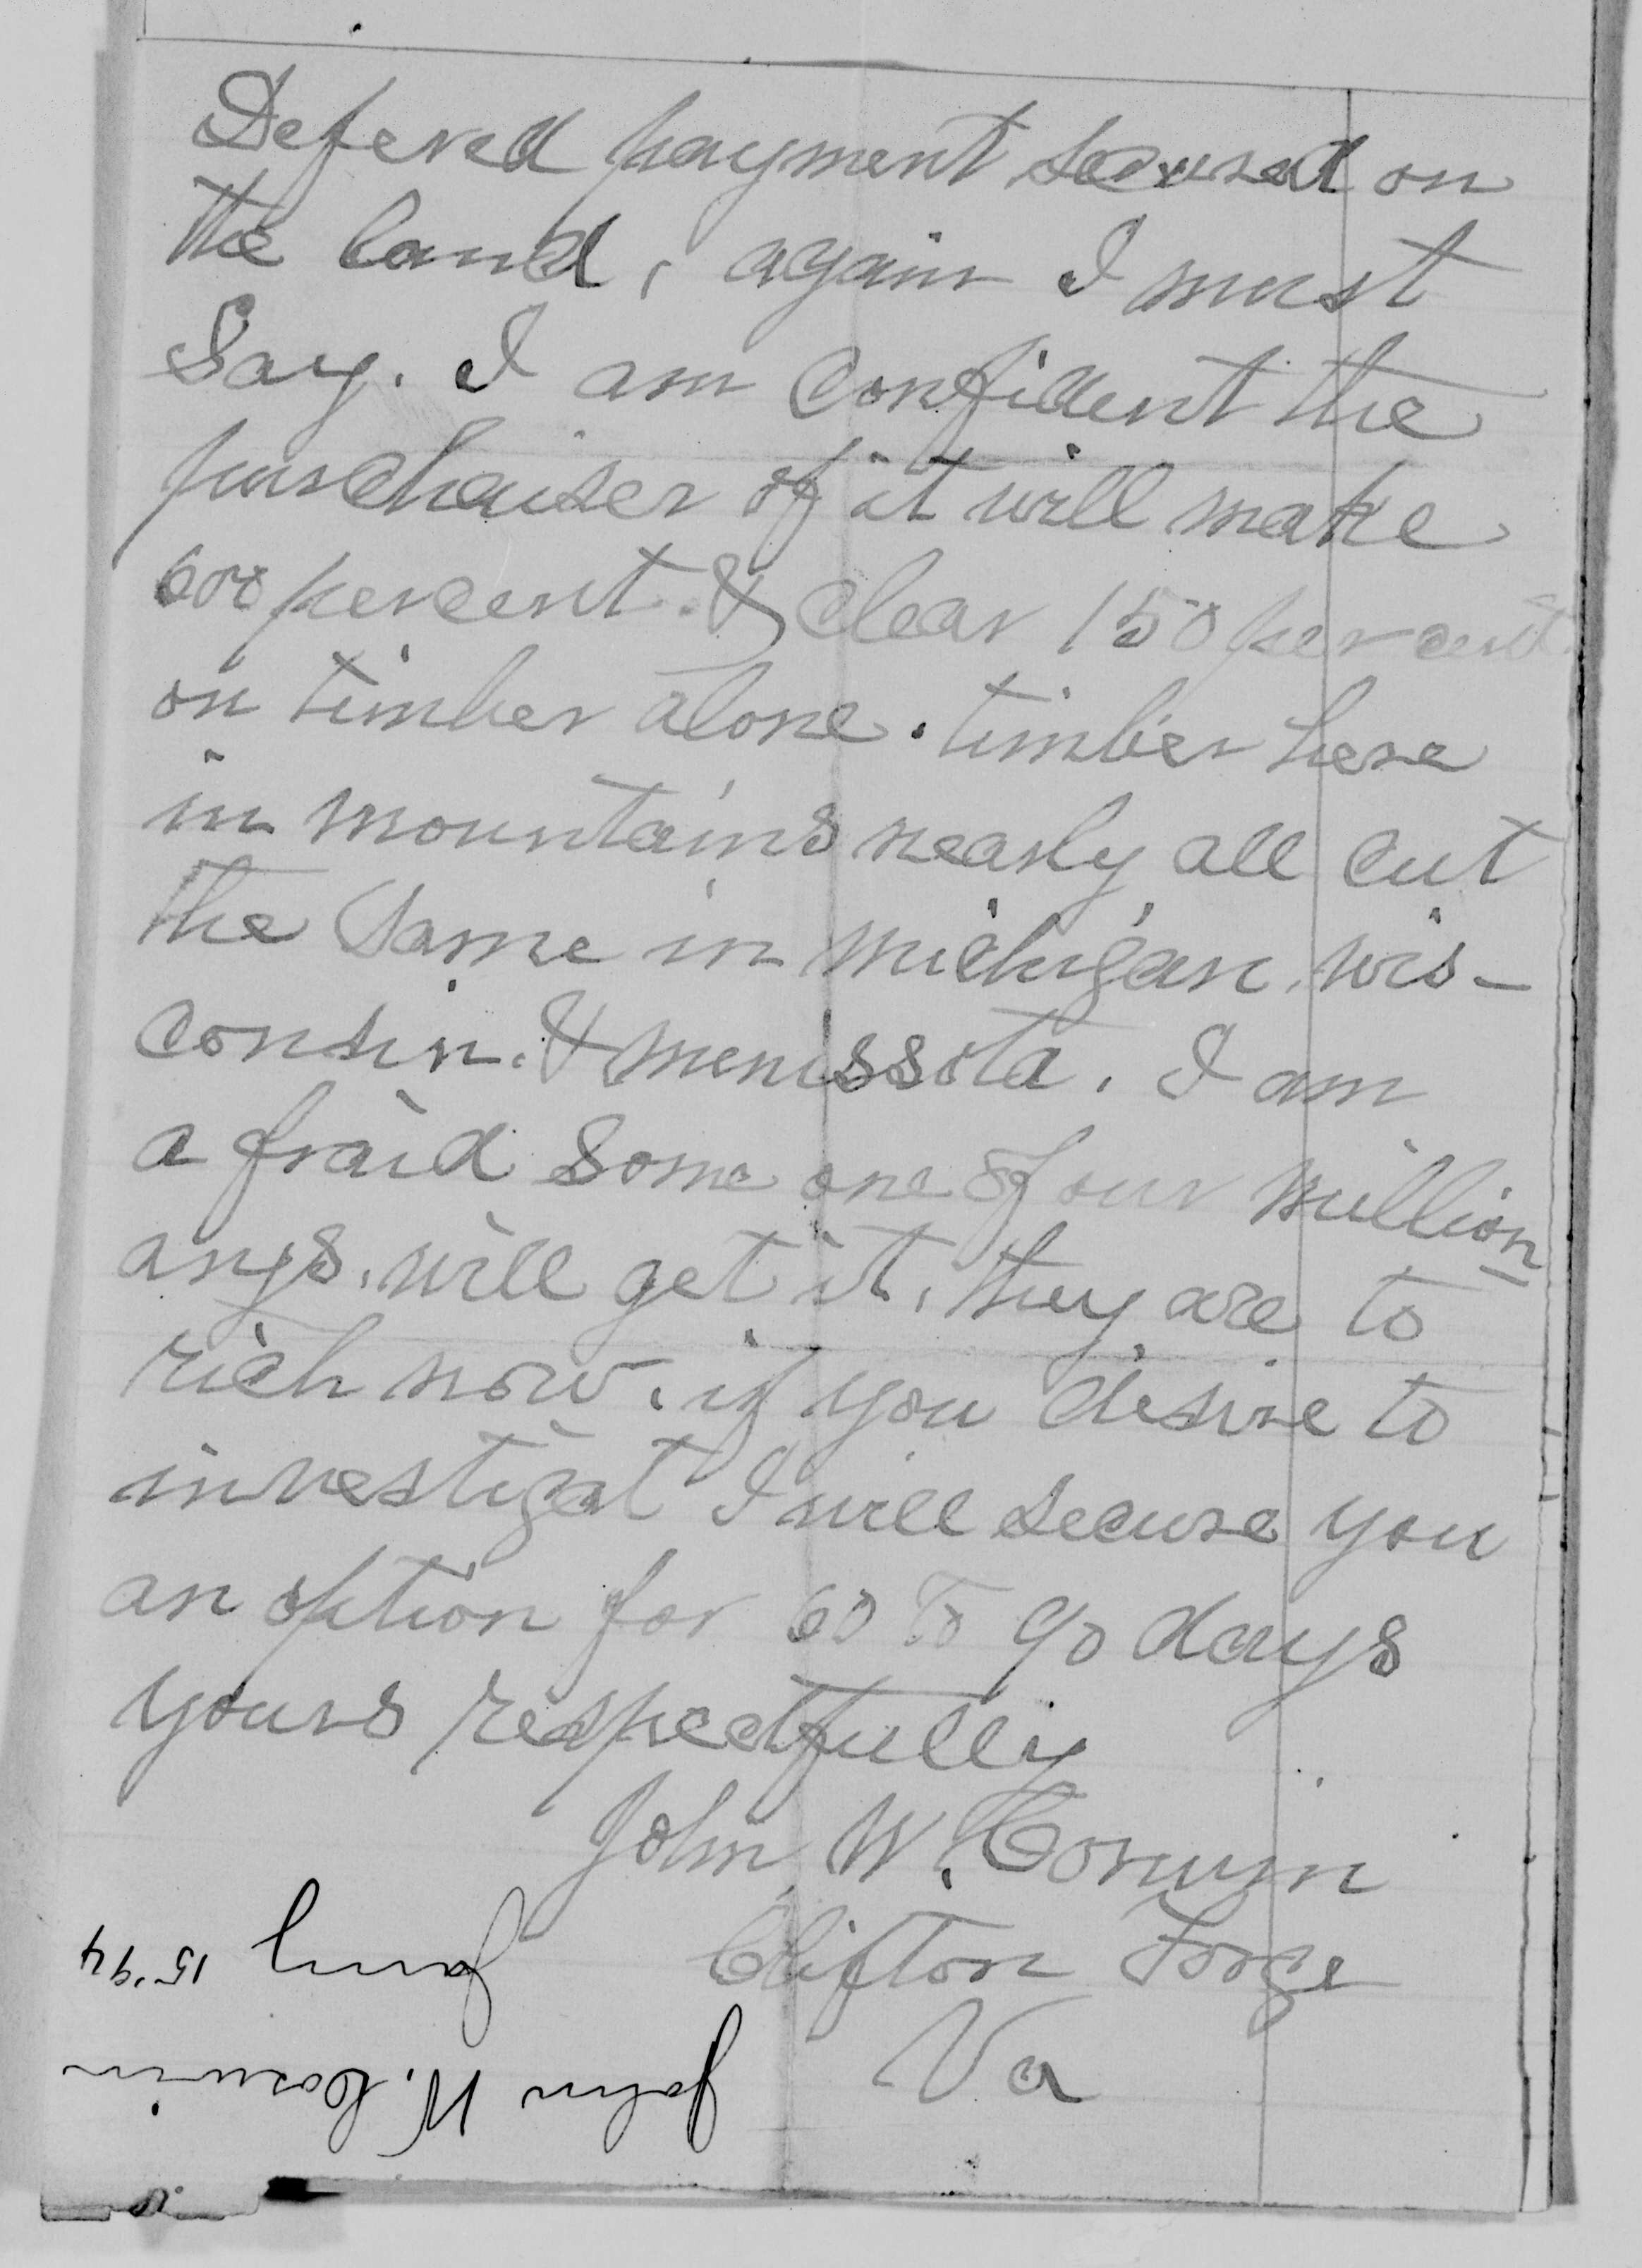 Defered payment secured on
the land, again I must
Say. I am confident the
purchaiser of it will make
600 percent. & clear 150 percent.
on timber alone. timber here
in mountains nearly all cut
the same in michigan, wis-
consin. & menissota. I am
a fraid some one of our million
anys. will get it, they are to
rich now. if you desire to
investigat I will secure you
an option for 60 to 90 days
yours respectfully
John W. Corwin
Clifton Forge
Va
John W. Corwin
Jany 15 '94